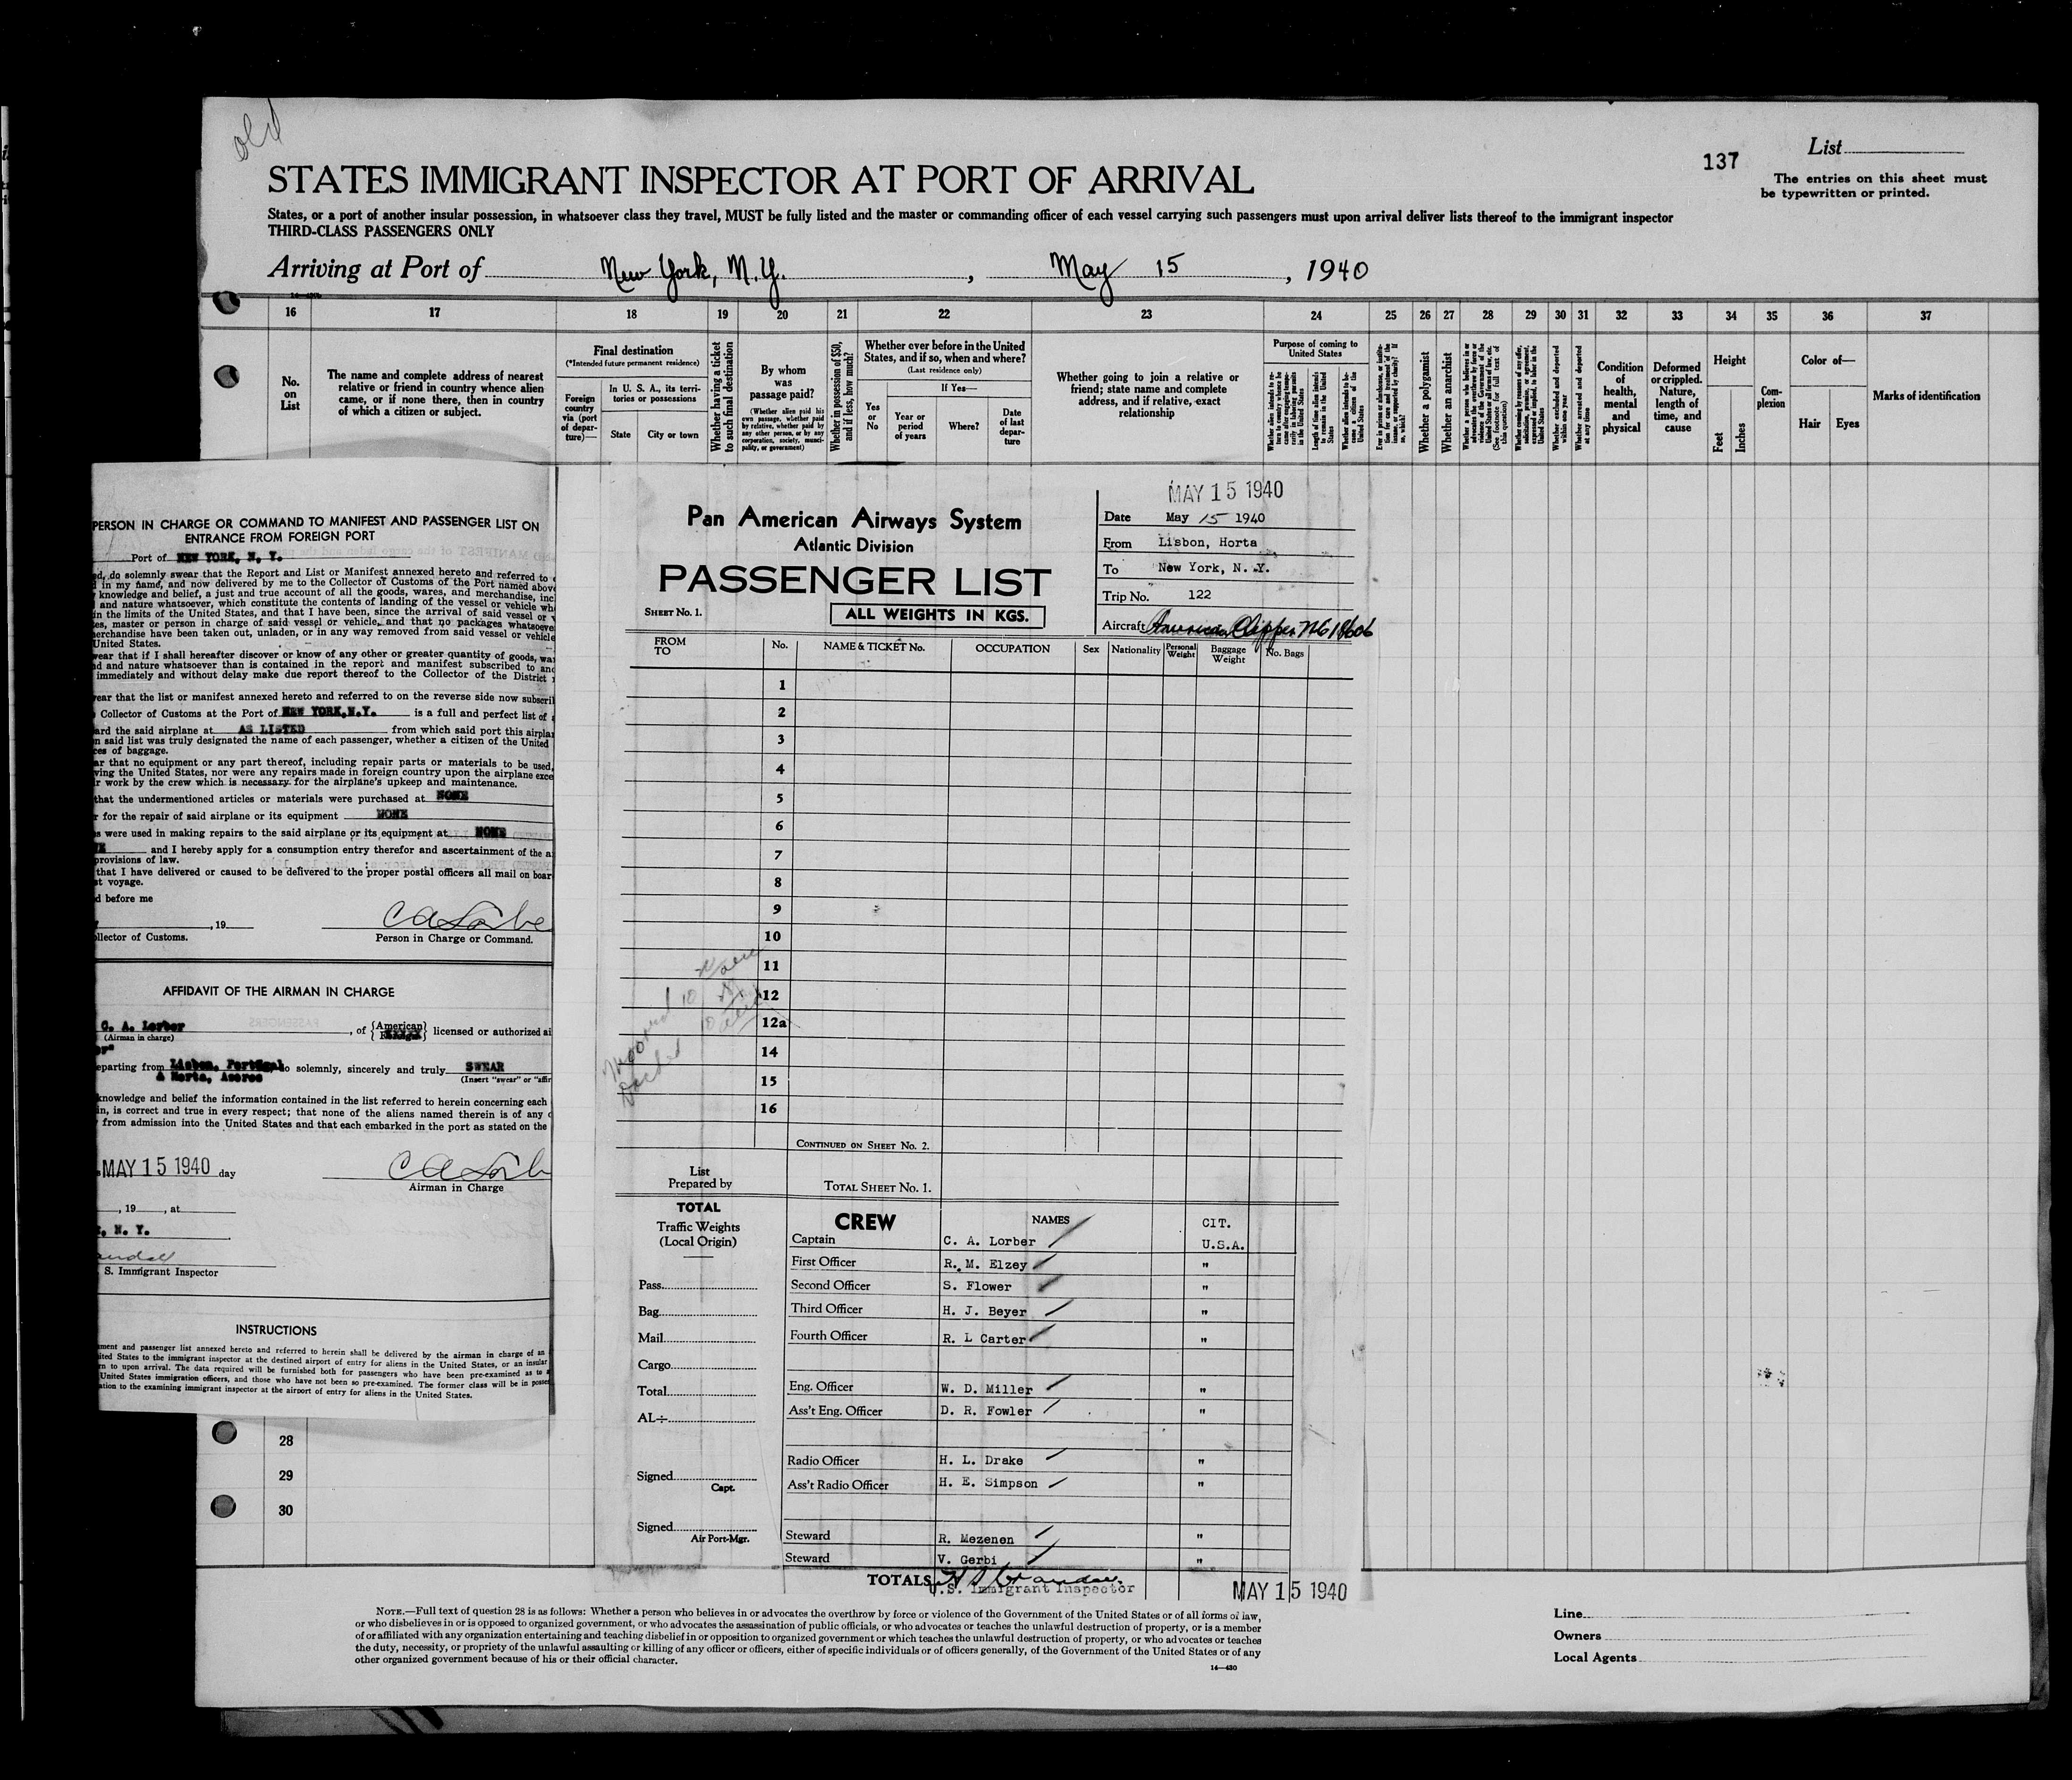 old
137
List
The entries on this sheet must
be typewritten or printed.
STATES IMMIGRANT INSPECTOR AT PORT OF ARRIVAL
States, or a port of another insular possession, in whatsoever class they travel, MUST be fully listed and the master or commanding officer of each vessel carrying such passengers must upon arrival deliver lists thereof to the immigrant inspector
THIRD-CLASS PASSENGERS ONLY
Arriving at Port of New York, N.Y. , May 15 , 1940
16 17 18 19 20 21 22 23 24 25 26 27 28 29 30 31 32 33 34 35 36 37
No.
on
List
The name and complete address of nearest
relative or friend in country whence alien
came, or if none there, then in country
of which a citizen or subject.
Final destination
(*Intended future permanent residence)
Foreign
country
via (port
of depar-
ture)—
In U. S. A., its terri-
tories or possessions
State
City or town
Whether having a ticket
to such final destination
By whom
was
passage paid?
(Whether alien paid his
own passage, whether paid
by relative, whether paid by
any other person, or by any
corporation, society, munici-
pality, or government)
Whether in possession of $50,
and if less, how much?
Whether ever before in the United
States, and if so, when and where?
(Last residence only)
Yes
or
No
If Yes—
Year or
period
of years
Where?
Date
of last
depar-
ture
Whether going to join a relative or
friend; state name and complete
address, and if relative, exact
relationship
Purpose of coming to
United States
Length of time alien intends
to remain in the United
States
Whether alien intends to be-
come a citizen of the
United States
Whether a polygamist
Whether an anarchist
(See footnote for full text of
this question)
Whether excluded and deported
within one year
Whether arrested and deported
at any time
Condition
of
health,
mental
and
physical
Deformed
or crippled.
Nature,
length of
time, and
cause
Height
Feet
Inches
Com-
plexion
Color of—
Hair
Eyes
Marks of identification
PERSON IN CHARGE OR COMMAND TO MANIFEST AND PASSENGER LIST ON
ENTRANCE FROM FOREIGN PORT
Port of NEW YORK, N, Y.
ed, do solemnly swear that the Report and List or Manifest annexed hereto and referred to
d in my name, and now delivered by me to the Collector of Customs of the Port named above
knowledge and belief, a just and true account of all the goods, wares, and merchandise, inc
and nature whatsoever, which constitute the contents of landing of the vessel or vehicle wh
in the limits of the United States, and that I have been, since the arrival of said vessel or
es, master or person in charge of said vessel or vehicle, and that no packages whatsoever
erchandise have been taken out, unladen, or in any way removed from said vessel or vehicle
United States.
wear that if I shall hereafter discover or know of any other or greater quantity of goods, wa
d and nature whatsoever than is contained in the report and manifest subscribed to and
immediately and without delay make due report thereof to the Collector of the District
ear that the list or manifest annexed hereto and referred to on the reverse side now subscri
Collector of Customs at the Port of NEW YORK,N.Y. is a full and perfect list of
ard the said airplane at AS LISTED from which said port this airpla
n said list was truly designated the name of each passenger, whether a citizen of the United
ces of baggage.
ar that no equipment or any part thereof, including repair parts or materials to be used,
ving the United States, nor were any repairs made in foreign country upon the airplane exce
r work by the crew which is necessary for the airplane's upkeep and maintenance.
that the undermentioned articles or materials were purchased at NONE
r for the repair of said airplane or its equipment NONE
s were used in making repairs to the said airplane or its equipment at NONE
and I hereby apply for a consumption entry therefor and ascertainment of the a
provisions of law.
that I have delivered or caused to be delivered to the proper postal officers all mail on boar
st voyage.
d before me
, 19
C A Lorbe
ollector of Customs.
Person in Charge or Command.
AFFIDAVIT OF THE AIRMAN IN CHARGE
C. A. Lorber , of {American} licensed or authorized ai
(Airman in charge)
er"
eparting from Lisbon, Portugal do solemnly, sincerely and truly SWEAR
& Horta, Azores
(Insert "swear" or "affir
knowledge and belief the information contained in the list referred to herein concerning each
in, is correct and true in every respect; that none of the aliens named therein is of any
from admission into the United States and that each embarked in the port as stated on the
MAY 15 1940 day
C A Lorb
Airman in Charge
, 19 , at
, N. Y.
S. Immigrant Inspector
INSTRUCTIONS
ment and passenger list annexed hereto and referred to herein shall be delivered by the airman in charge of an
ited States to the immigrant inspector at the destined airport of entry for aliens in the United States, or an insular
rn to upon arrival. The data required will be furnished both for passengers who have been pre-examined as to
United States immigration officers, and those who have not been so pre-examined. The former class will be in posse
ation to the examining immigrant inspector at the airport of entry for aliens in the United States.
28
29
30
Pan American Airways System
Atlantic Division
PASSENGER LIST
SHEET No. 1.
ALL WEIGHTS IN KGS.
MAY 15 1940
Date May 15 1940
From Lisbon, Horta
To New York, N. Y.
Trip No. 122
Aircraft American Clipper NC18606
FROM
TO
No.
NAME & TICKET No.
OCCUPATION
Sex
Nationality
Personal
Weight
Baggage
Weight
No. Bags
1
2
3
4
5
6
7
8
9
10
11
12
12a
14
15
16
CONTINUED ON SHEET No. 2.
List
Prepared by
TOTAL SHEET No. 1.
TOTAL
Traffic Weights
(Local Origin)
Pass.
Bag.
Mail
Cargo
Total
AL÷
Signed
Capt.
Signed
Air Port-Mgr.
CREW NAMES CIT.
Captain C. A. Lorber U.S.A.
First Officer R. M. Elzey "
Second Officer S. Flower "
Third Officer H. J. Beyer "
Fourth Officer R. L Carter "
Eng. Officer W. D. Miller "
Ass't Eng. Officer D. R. Fowler "
Radio Officer H. L. Drake "
Ass't Radio Officer H. E. Simpson "
Steward R. Mezenen "
Steward V. Gerbi "
TOTALS
U.S. Immigrant Inspector
MAY 15 1940
NOTE.—Full text of question 28 is as follows: Whether a person who believes in or advocates the overthrow by force or violence of the Government of the United States or of all forms of law,
or who disbelieves in or is opposed to organized government, or who advocates the assassination of public officials, or who advocates or teaches the unlawful destruction of property, or is a member
of or affiliated with any organization entertaining and teaching disbelief in or opposition to organized government or which teaches the unlawful destruction of property, or who advocates or teaches
the duty, necessity, or propriety of the unlawful assaulting or killing of any officer or officers, either of specific individuals or of officers generally, of the Government of the United States or of any
other organized government because of his or their official character.
14—430
Line
Owners
Local Agents